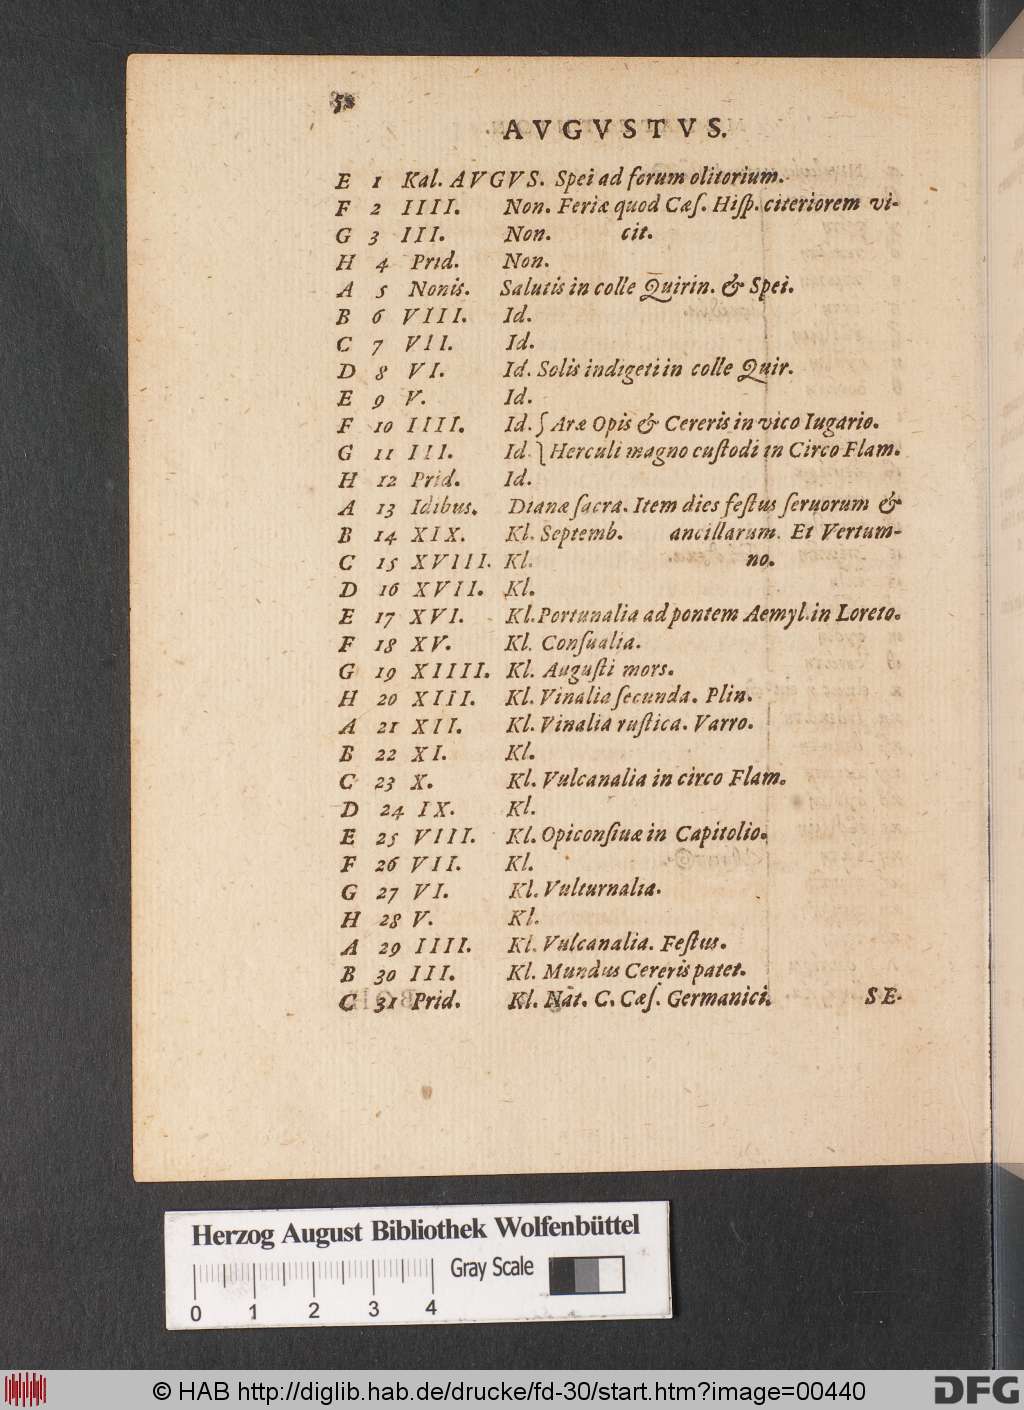 AVGVSTVS.
E 1 Kal. AVGVS. Spei ad forum olitorium.
F 2 IIII. Non. Feriæ quod Cæſ. Hiſp. citeriorem vi-
G 3 III. Non. cit.
H 4 Prid. Non.
A 5 Nonis. Salutis in colle Quirin. & Spei.
B 6 VIII. Id.
C 7 VII. Id.
D 8 VI. Id. Solis indigeti in colle Quir.
E 9 V. Id.
F 10 IIII. Id. { Aræ Opis & Cereris in vico Iugario.
G 11 III. Id. { Herculi magno cuſtodi in Circo Flam.
H 12 Prid. Id.
A 13 Idibus. Dianæ ſacra. Item dies feſtus ſeruorum &
B 14 XIX. Kl. Septemb. ancillarum. Et Vertum-
C 15 XVIII. Kl. no.
D 16 XVII. Kl.
E 17 XVI. Kl. Portunalia ad pontem Aemyl. in Loreto.
F 18 XV. Kl. Conſualia.
G 19 XIIII. Kl. Auguſti mors.
H 20 XIII. Kl. Vinalia ſecunda. Plin.
A 21 XII. Kl. Vinalia ruſtica. Varro.
B 22 XI. Kl.
C 23 X. Kl. Vulcanalia in circo Flam.
D 24 IX. Kl.
E 25 VIII. Kl. Opiconſiuæ in Capitolio.
F 26 VII. Kl.
G 27 VI. Kl. Vulturnalia.
H 28 V. Kl.
A 29 IIII. Kl. Vulcanalia. Feſtus.
B 30 III. Kl. Mundus Cereris patet.
C 31 Prid. Kl. Nat. C. Cæſ. Germanici. SE-
Herzog August Bibliothek Wolfenbüttel
Gray Scale
0 1 2 3 4
© HAB http://diglib.hab.de/drucke/fd-30/start.htm?image=00440
DFG